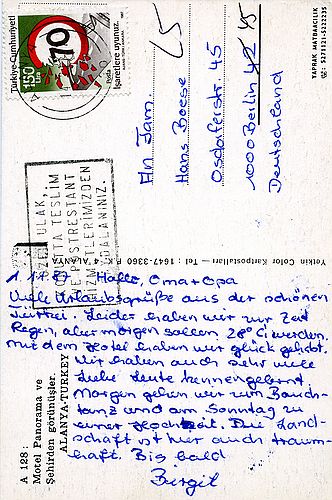 Türkiye Cumhuriyeti
150
Lira
70
Posta
İşaretlere uyunuz.
ULAK,
TA TESLİM
E POSTRESTANT
İZMETLERİMİZDEN
DALANINIZ.
An Fam.
Hans Boese
Osdorferstr. 45
1000 Berlin 42 45
Deutschland
YAPRAK MATBAACILIK
Yetkin Color Kartpostalları — Tel : 1647-3360 P.K. 4 ALANYA
A 128 :
Motel Panorama ve
Şehirden görünüşler.
ALANYA-TURKEY
Hallo, Oma + Opa
Viele Urlaubsgrüße aus der schönen
Türkei. Leider haben wir zur Zeit
Regen, aber morgen sollen 28° C werden.
Mit dem Hotel haben wir glück gehabt.
Wir haben auch sehr viele
liebe Leute kennengelernt
Morgen gehen wir zum Bauch-
tanz und am Sonntag zu
einer Hochzeit. Die Land-
schaft ist hier auch traum-
haft. Bis bald
Birgit